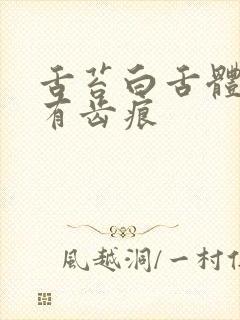 舌苔白舌體
有齿痕
風越洞/一村